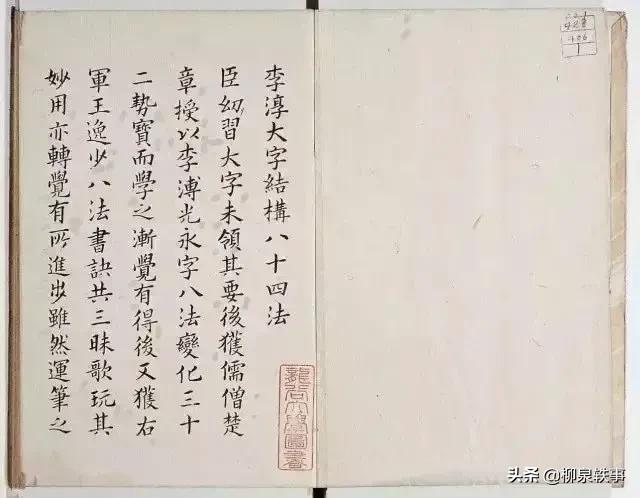 李淳大字結構八十四法
臣幼習大字未領其要後獲儒僧楚
章授以李溥光永字八法變化三十
二勢寶而學之漸覺有得後又獲右
軍王逸少八法書訣共三昧歌玩其
妙用亦轉覺有所進步雖然運筆之
龍谷大學圖書
406
1
头条 @柳泉轶事